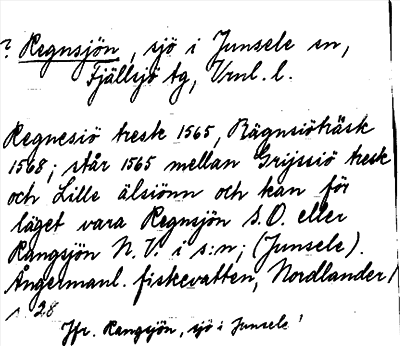 ? Regnsjön, sjö i Junsele sn,
Fjällsjö tg, Vrnl. l.
Regnesiö tresk 1565, Rägnsiöträsk
1568; står 1565 mellan Grijssiö tresk
och Lille älsiönn och kan för
läget vara Regnsjön S.O. eller
Rangsjön N.V. i s:n; (Junsele).
Ångermanl. fiskevatten, Nordlander/
s. 28
Jfr. Rangsjön, sjö i Junsele!